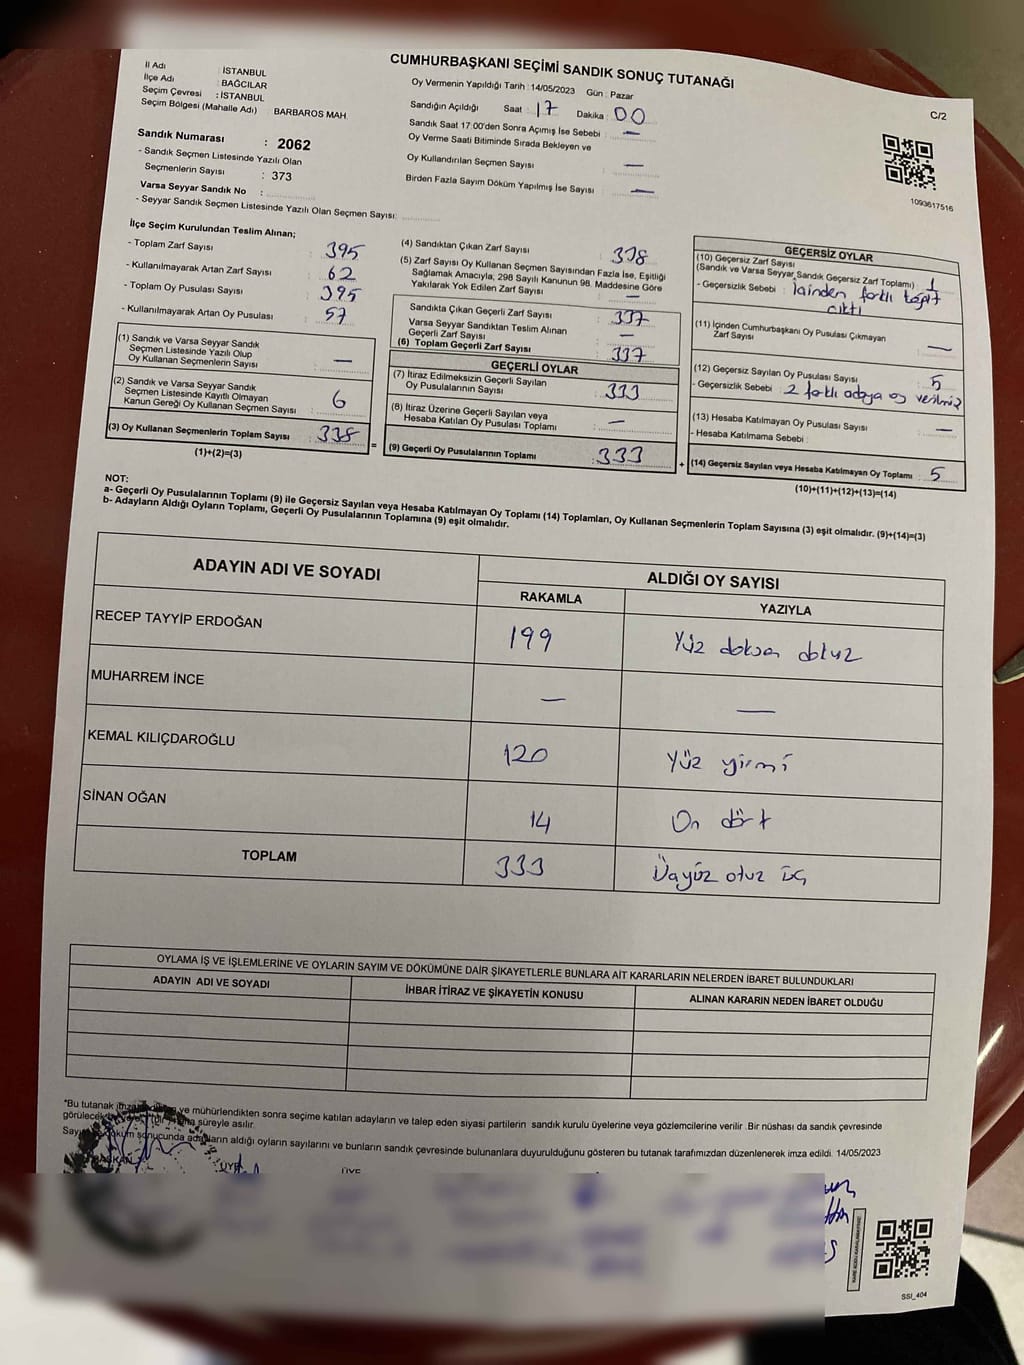 CUMHURBAŞKANI SEÇİMİ SANDIK SONUÇ TUTANAĞI
İl Adı : İSTANBUL
İlçe Adı : BAĞCILAR
Seçim Çevresi : İSTANBUL
Seçim Bölgesi (Mahalle Adı) BARBAROS MAH.
Sandık Numarası : 2062
- Sandık Seçmen Listesinde Yazılı Olan
Seçmenlerin Sayısı : 373
Varsa Seyyar Sandık No :
- Seyyar Sandık Seçmen Listesinde Yazılı Olan Seçmen Sayısı:
Oy Vermenin Yapıldığı Tarih : 14/05/2023 Gün : Pazar
Sandığın Açıldığı Saat : 17 Dakika : 00
Sandık Saat 17:00'den Sonra Açımış İse Sebebi : —
Oy Verme Saati Bitiminde Sırada Bekleyen ve
Oy Kullandırılan Seçmen Sayısı : —
Birden Fazla Sayım Döküm Yapılmış İse Sayısı : —
C/2
1093617516
İlçe Seçim Kurulundan Teslim Alınan;
- Toplam Zarf Sayısı : 395
- Kullanılmayarak Artan Zarf Sayısı : 62
- Toplam Oy Pusulası Sayısı : 395
- Kullanılmayarak Artan Oy Pusulası : 57
(1) Sandık ve Varsa Seyyar Sandık
Seçmen Listesinde Yazılı Olup
Oy Kullanan Seçmenlerin Sayısı : —
(2) Sandık ve Varsa Seyyar Sandık
Seçmen Listesinde Kayıtlı Olmayan
Kanun Gereği Oy Kullanan Seçmen Sayısı : 6
(3) Oy Kullanan Seçmenlerin Toplam Sayısı : 338
(1)+(2)=(3)
(4) Sandıktan Çıkan Zarf Sayısı : 338
(5) Zarf Sayısı Oy Kullanan Seçmen Sayısından Fazla İse, Eşitliği
Sağlamak Amacıyla, 298 Sayılı Kanunun 98. Maddesine Göre
Yakılarak Yok Edilen Zarf Sayısı : —
Sandıkta Çıkan Geçerli Zarf Sayısı : 337
Varsa Seyyar Sandıktan Teslim Alınan
Geçerli Zarf Sayısı : —
(6) Toplam Geçerli Zarf Sayısı : 337
GEÇERLİ OYLAR
(7) İtiraz Edilmeksizin Geçerli Sayılan
Oy Pusulalarının Sayısı : 333
(8) İtiraz Üzerine Geçerli Sayılan veya
Hesaba Katılan Oy Pusulası Toplamı : —
= (9) Geçerli Oy Pusulalarının Toplamı : 333
GEÇERSİZ OYLAR
(10) Geçersiz Zarf Sayısı
(Sandık ve Varsa Seyyar Sandık Geçersiz Zarf Toplamı) : 1
- Geçersizlik Sebebi : İçinden farklı kağıt
çıktı
(11) İçinden Cumhurbaşkanı Oy Pusulası Çıkmayan
Zarf Sayısı : —
(12) Geçersiz Sayılan Oy Pusulası Sayısı : 5
- Geçersizlik Sebebi : 2 farklı adaya oy verilmiş
(13) Hesaba Katılmayan Oy Pusulası Sayısı : —
- Hesaba Katılmama Sebebi :
+ (14) Geçersiz Sayılan veya Hesaba Katılmayan Oy Toplamı : 5
(10)+(11)+(12)+(13)=(14)
NOT:
a- Geçerli Oy Pusulalarının Toplamı (9) ile Geçersiz Sayılan veya Hesaba Katılmayan Oy Toplamı (14) Toplamları, Oy Kullanan Seçmenlerin Toplam Sayısına (3) eşit olmalıdır. (9)+(14)=(3)
b- Adayların Aldığı Oyların Toplamı, Geçerli Oy Pusulalarının Toplamına (9) eşit olmalıdır.
ADAYIN ADI VE SOYADI ALDIĞI OY SAYISI
RAKAMLA YAZIYLA
RECEP TAYYİP ERDOĞAN 199 Yüz doksan dokuz
MUHARREM İNCE — —
KEMAL KILIÇDAROĞLU 120 Yüz yirmi
SİNAN OĞAN 14 On dört
TOPLAM 333 Üçyüz otuz üç
OYLAMA İŞ VE İŞLEMLERİNE VE OYLARIN SAYIM VE DÖKÜMÜNE DAİR ŞİKAYETLERLE BUNLARA AİT KARARLARIN NELERDEN İBARET BULUNDUKLARI
ADAYIN ADI VE SOYADI İHBAR İTİRAZ VE ŞİKAYETİN KONUSU ALINAN KARARIN NEDEN İBARET OLDUĞU
*Bu tutanak ve mühürlendikten sonra seçime katılan adayların ve talep eden siyasi partilerin sandık kurulu üyelerine veya gözlemcilerine verilir .Bir nüshası da sandık çevresinde
görülecek süreyle asılır.
sonucunda adayların aldığı oyların sayılarını ve bunların sandık çevresinde bulunanlara duyurulduğunu gösteren bu tutanak tarafımızdan düzenlenerek imza edildi. 14/05/2023
BAŞKAN ÜYE ÜYE
SSI_404